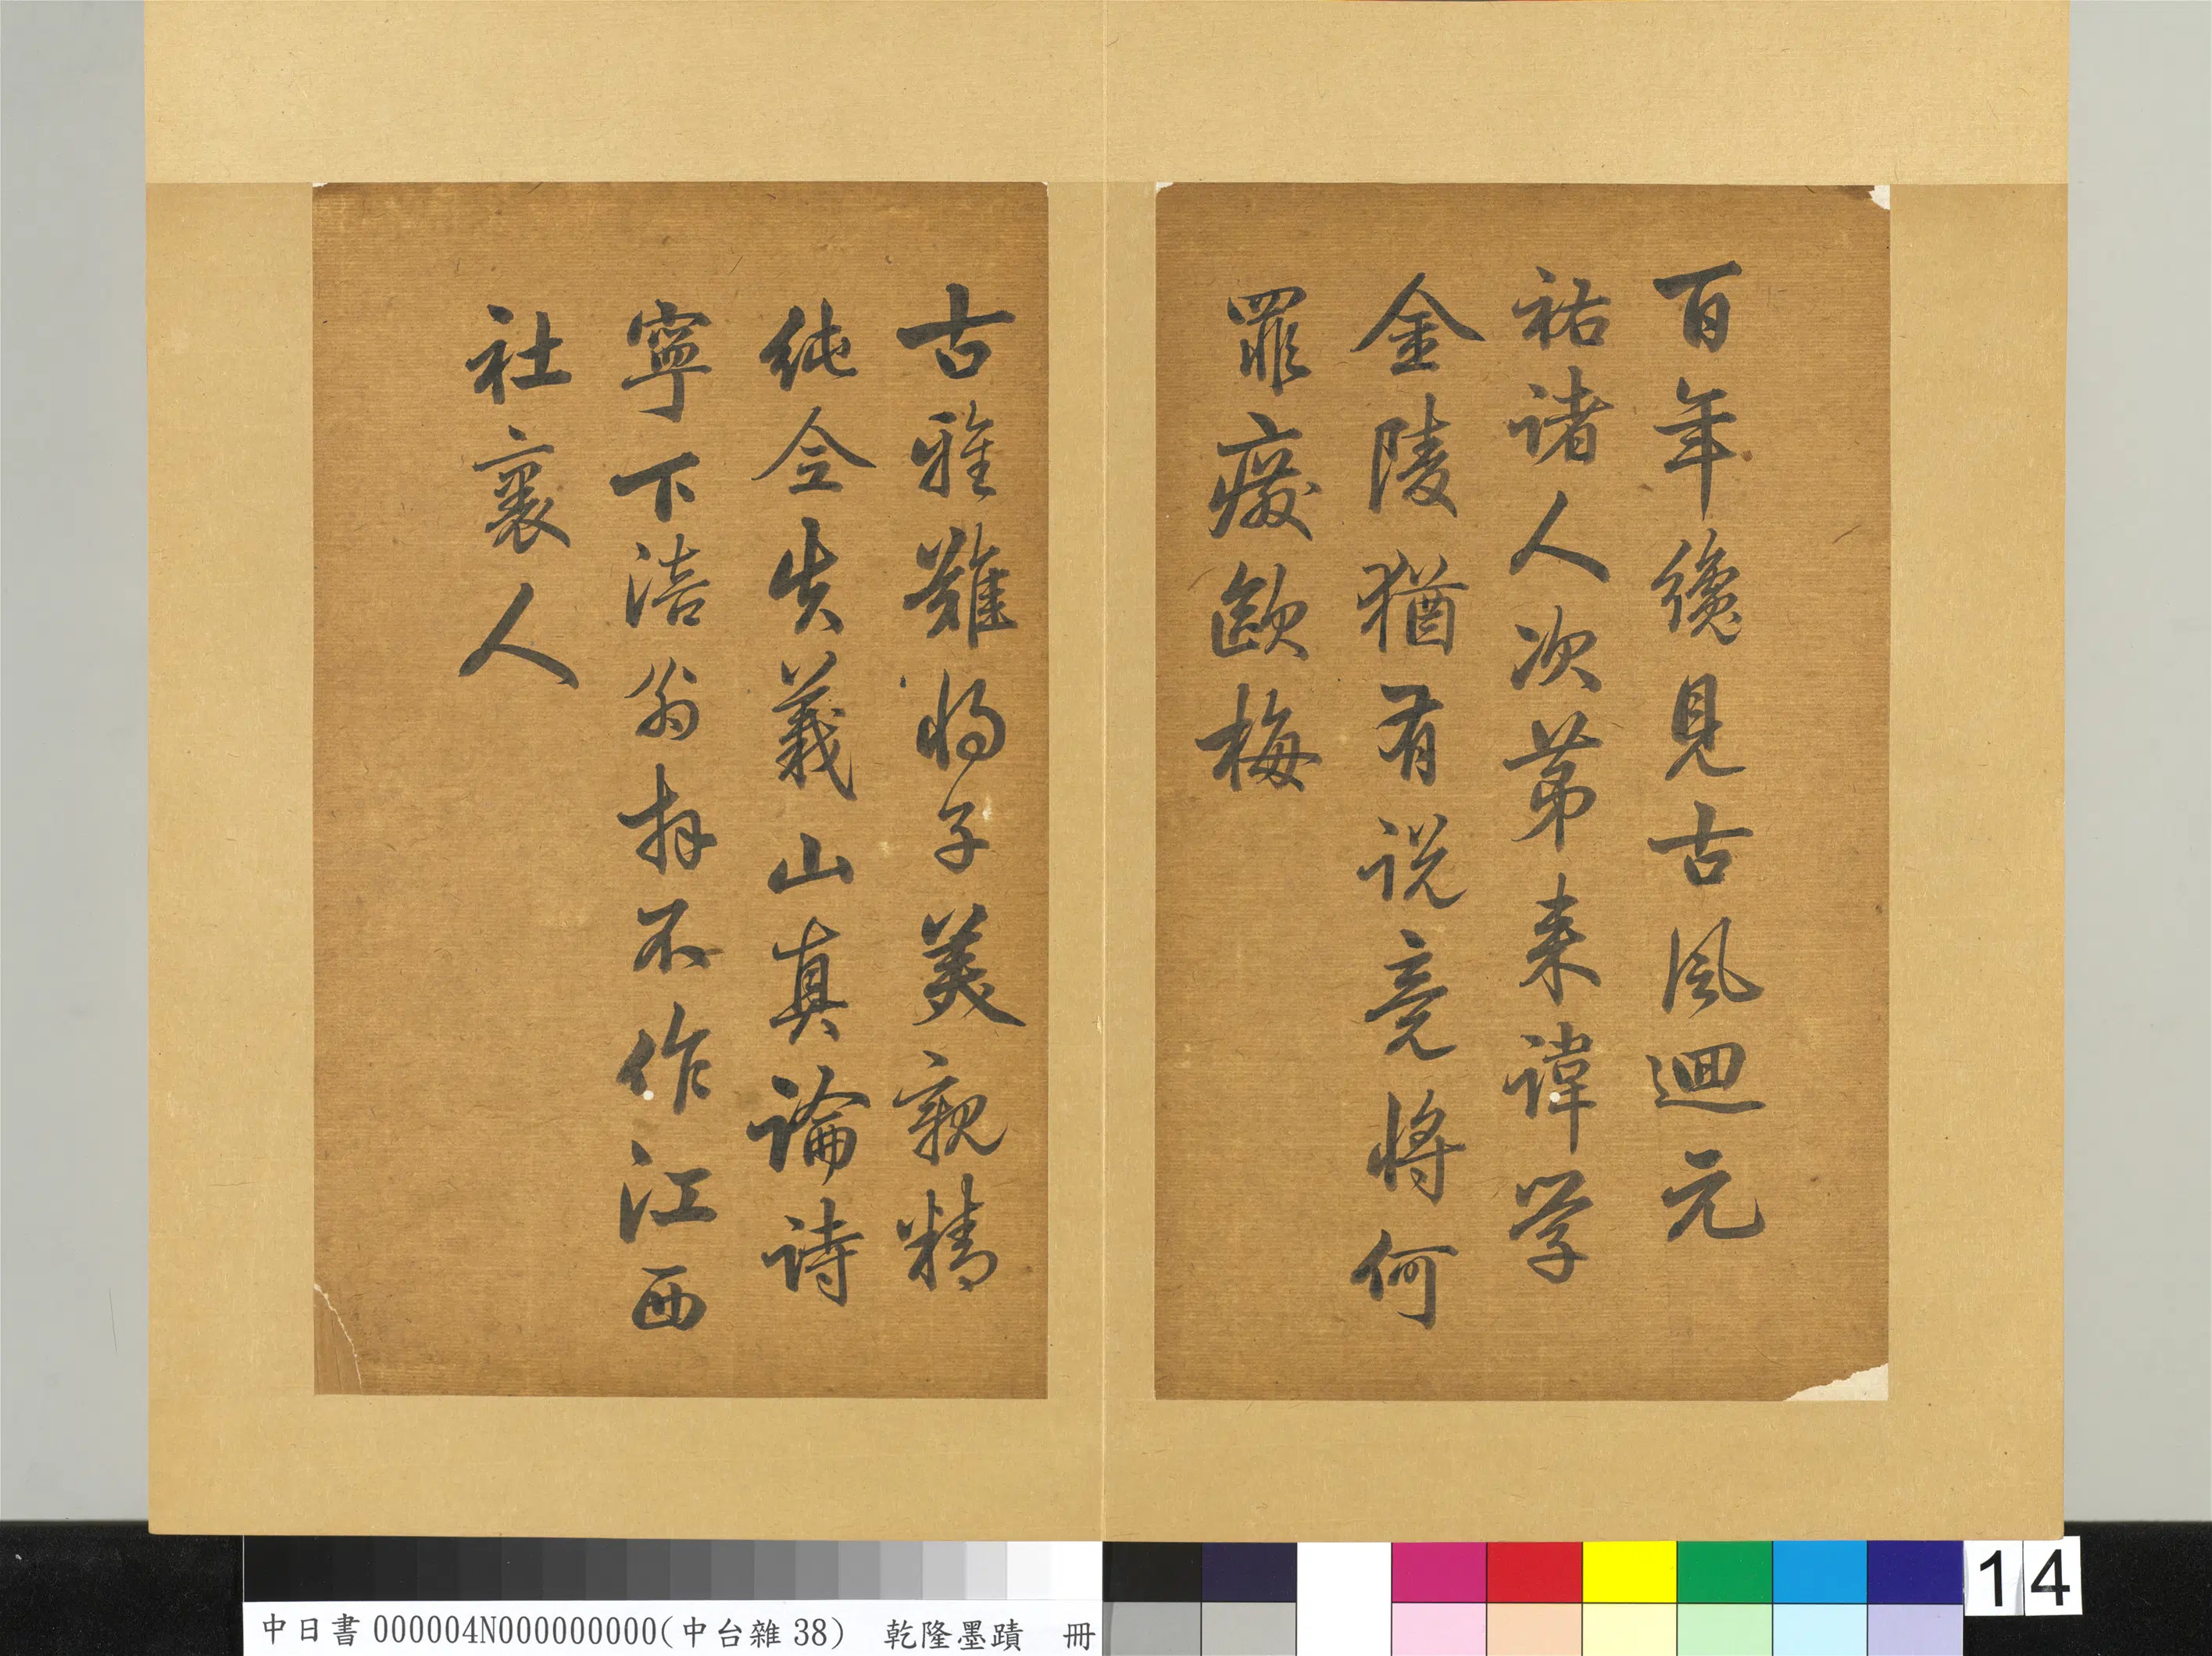 百年纔見古風迴元
祐諸人次第来諱学
金陵猶有说竟将何
罪廢歐梅
古雅難将子美親精
純全失義山真論詩
寧下涪翁拜不作江西
社裏人
中日書000004N000000000(中台雜38) 乾隆墨蹟 冊
14